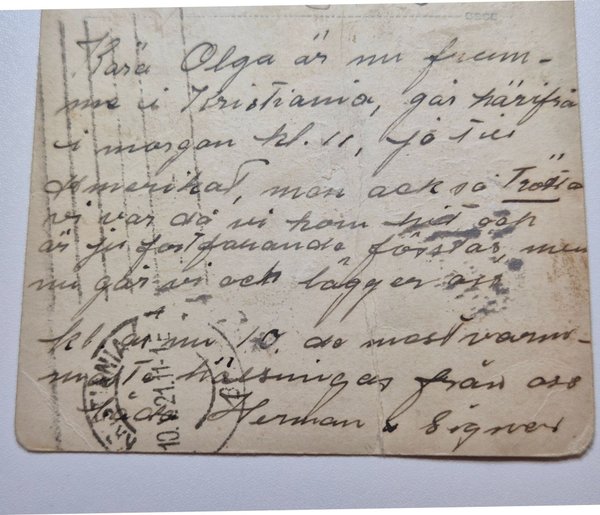 Kära Olga är nu fram-
me i Kristiania, går härifrå
i morgon kl. 11, jo till
Amerikat, men ack så Trötta
vi var då vi kom hit och
är jo fortfarande förstås, men
nu går vi och lägger oss
kl är nu 10. de mest varm-
maste hälsningas från oss
båda Herman & Signe
KRISTIANIA
10. 21.11-1